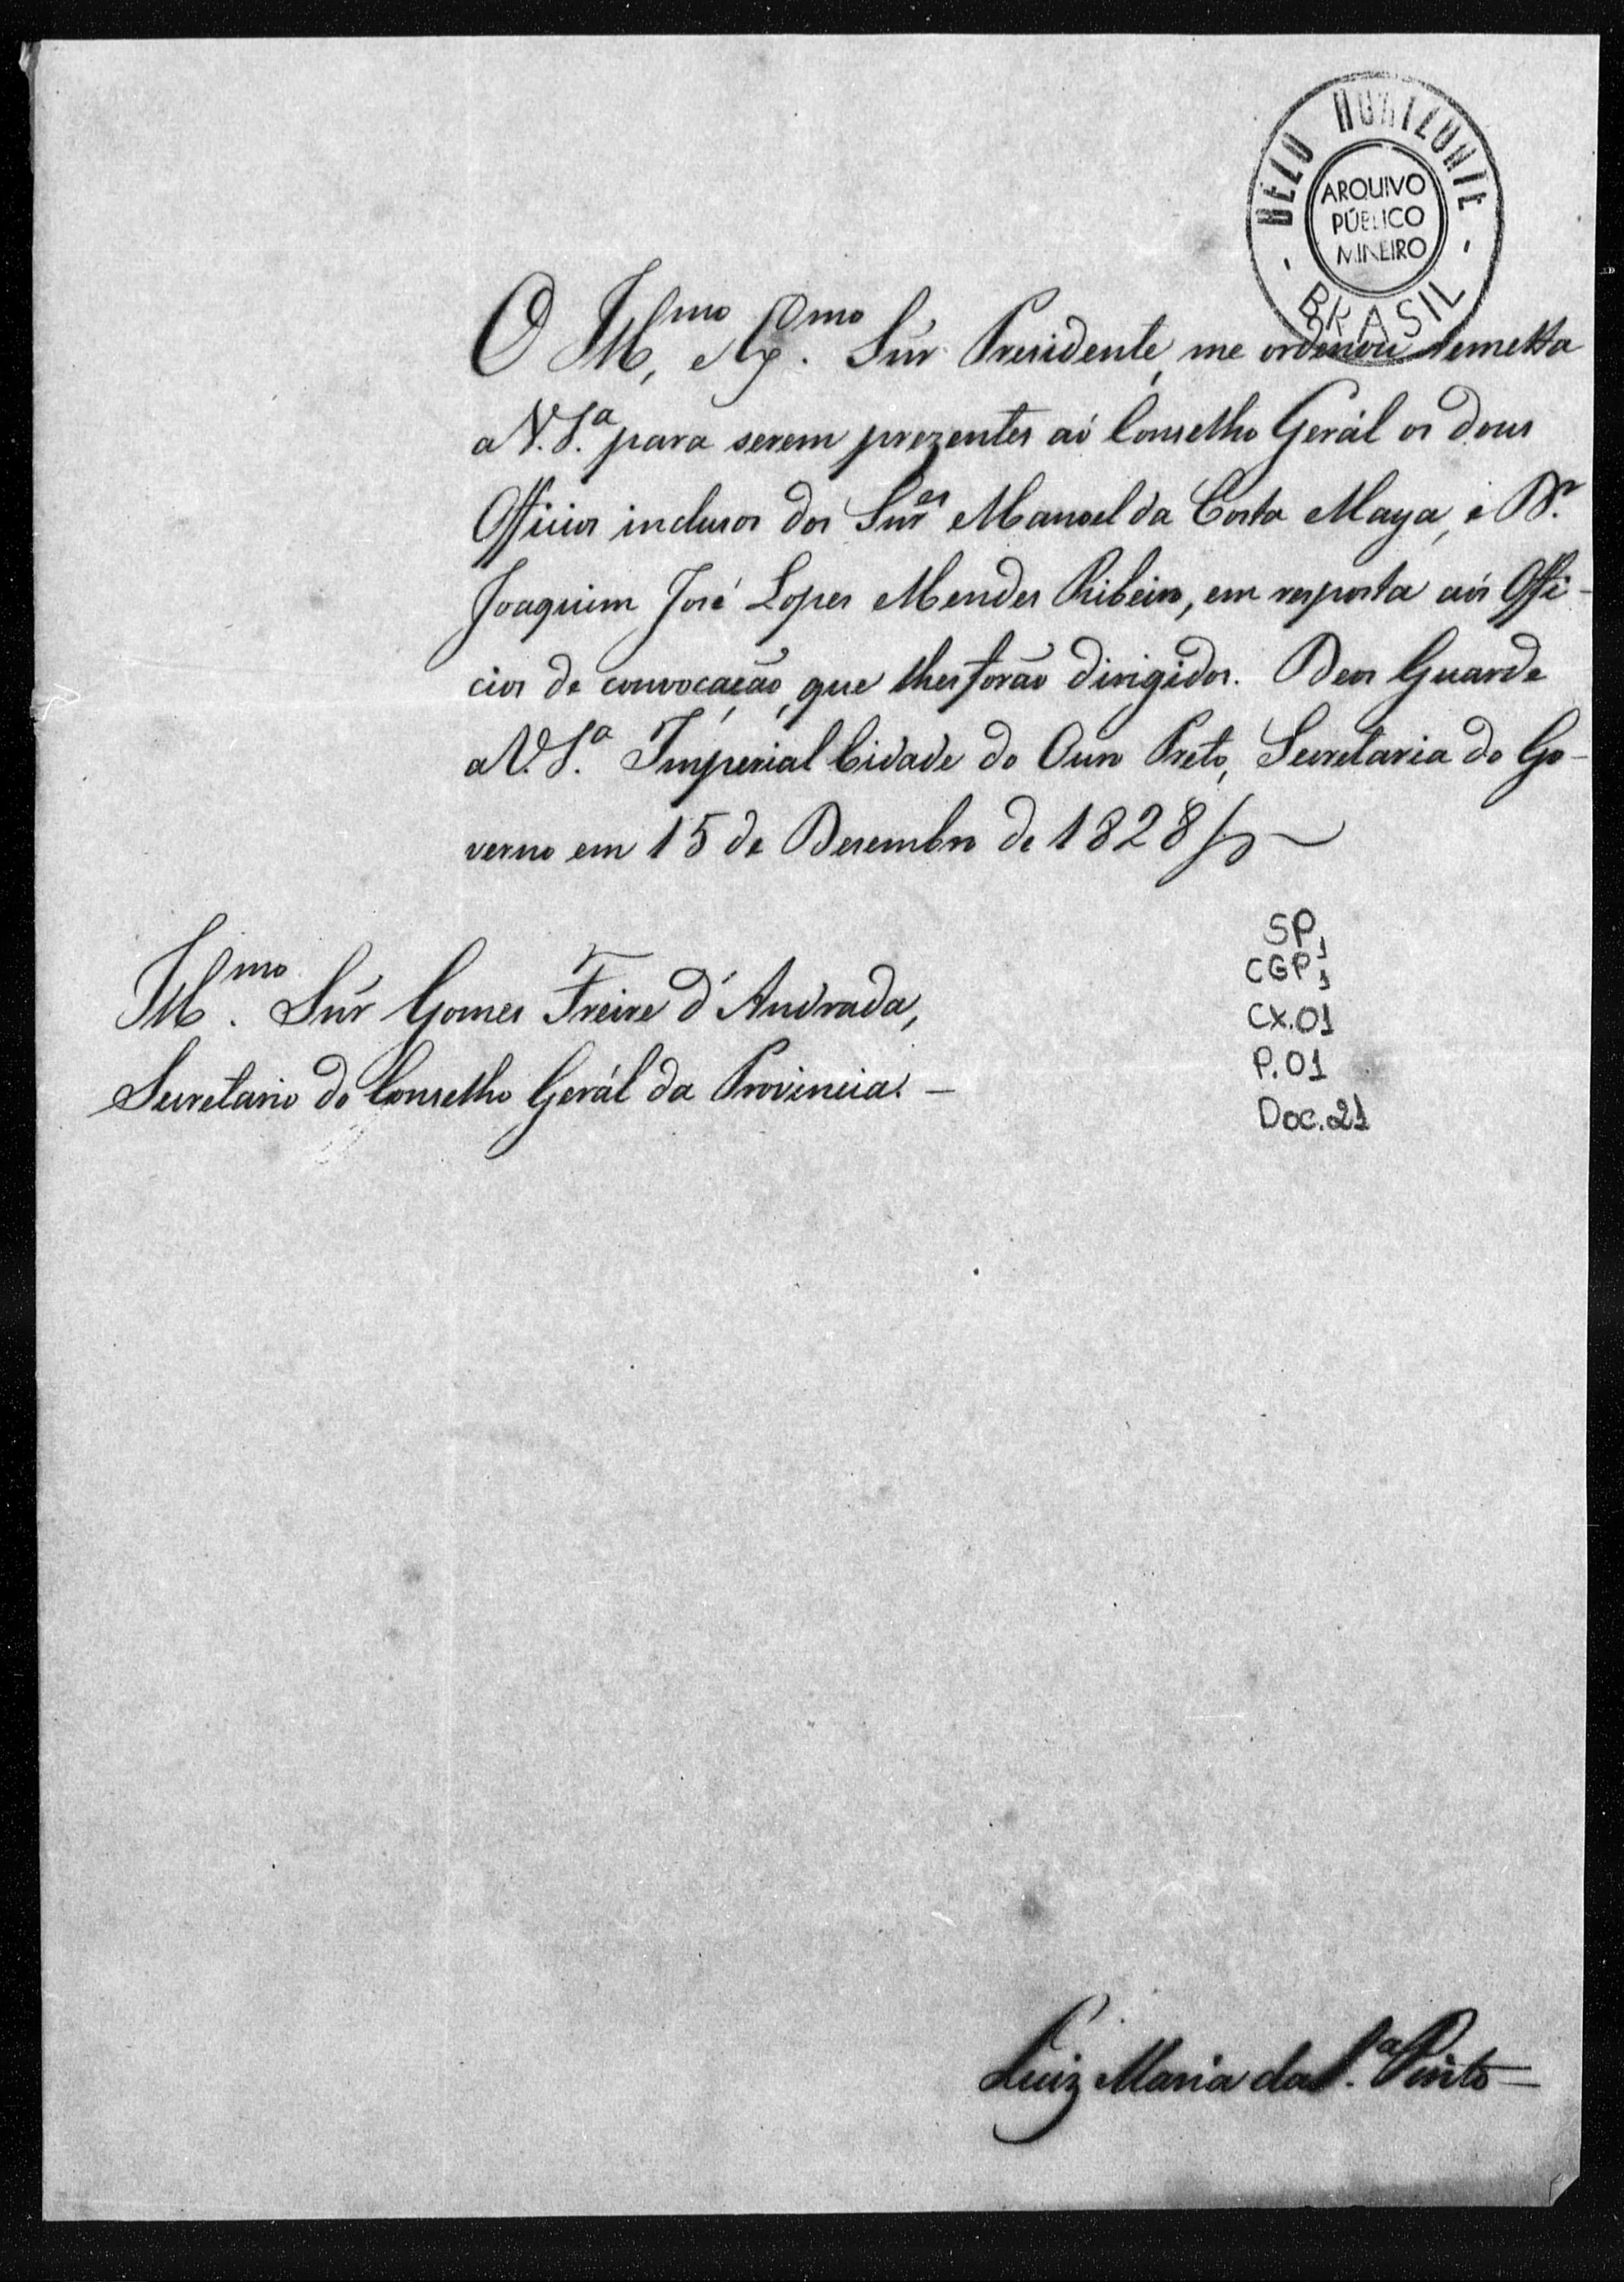 BELO HORIZONTE
ARQUIVO
PÚBLICO
MINEIRO
- BRASIL -
O Illmo, e Exmo. Sñr Presidente, me ordenou remetta
a V. S.ª para serem prezentes aó Conselho Gerál os dous
Officios inclusos dos Sñres Manoel da Costa Maya, e Dr.
Joaquim José Lopes Mendes Ribeiro, em resposta aós Offi-
cios de convocação, que lhes forão dirigidos. Deos Guarde
a V. S.ª Imperial Cidade do Ouro Preto, Secretaria do Go-
verno em 15 de Desembro de 1828
SP1
CGP1
CX.01
P.01
Doc.21
Illmo. Sñr Gomes Freire d'Andrada,
Secretario do Conselho Gerál da Provincia. -
Luiz Maria da S.ª Pinto